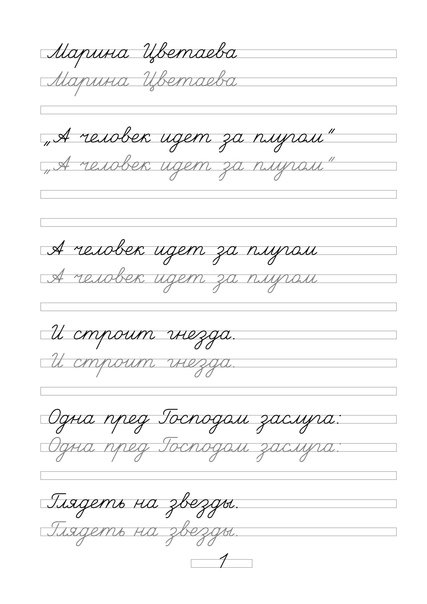 Марина Цветаева
Марина Цветаева
„А человек идет за плугом“
„А человек идет за плугом“
А человек идет за плугом
А человек идет за плугом
И строит гнезда.
И строит гнезда.
Одна пред Господом заслуга:
Одна пред Господом заслуга:
Глядеть на звезды.
Глядеть на звезды.
1